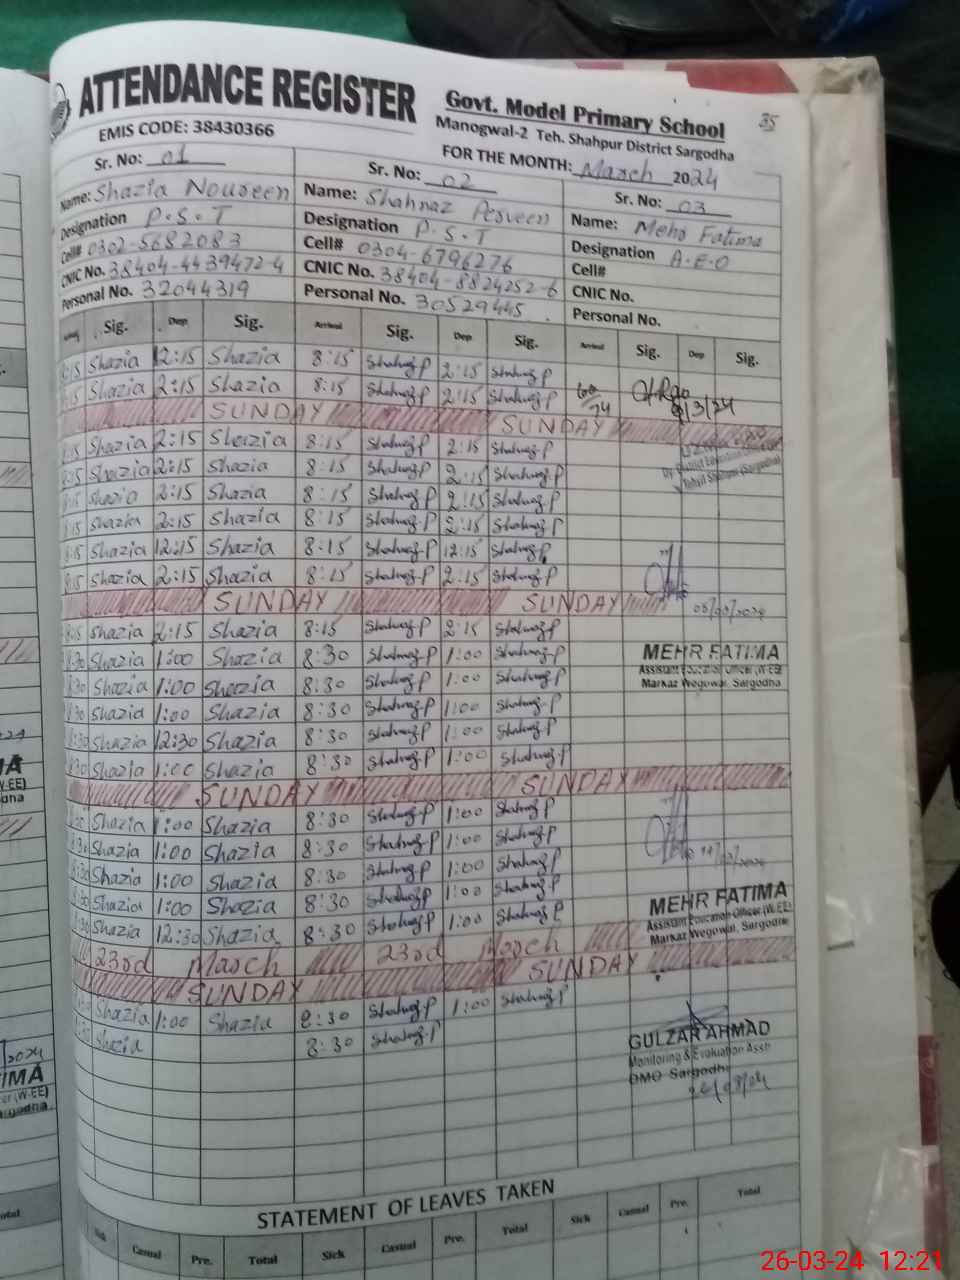 ATTENDANCE REGISTER
Govt. Model Primary School
35
EMIS CODE: 38430366
Manogwal-2 Teh. Shahpur District Sargodha
FOR THE MONTH: March 2024
Sr. No: 01
Sr. No: 02
Sr. No: 03
Name: Shazia Noureen
Name: Shahnaz Perveen
Name: Mehr Fatima
Designation P.S.T
Designation P.S.T
Designation A.E.O
Cell# 0302-5682083
Cell# 0304-6796276
Cell#
CNIC No. 38404-4439472-4
CNIC No. 38404-8824252-6
CNIC No.
Personal No. 32044319
Personal No. 30529445
Personal No.
Sig. Dep Sig. Arrival Sig. Dep Sig. Arrival Sig. Dep Sig.
:15 Shazia 12:15 Shazia 8:15 Shahnaz P 2:15 Shahnaz P
:15 Shazia 2:15 Shazia 8:15 Shahnaz P 2:15 Shahnaz P
/3/24
SUNDAY SUNDAY
:15 Shazia 2:15 Shazia 8:15 Shahnaz P 2:15 Shahnaz P
:15 Shazia 2:15 Shazia 8:15 Shahnaz P 2:15 Shahnaz P
:15 Shazia 2:15 Shazia 8:15 Shahnaz P 2:15 Shahnaz P
:15 Shazia 2:15 Shazia 8:15 Shahnaz P 2:15 Shahnaz P
8:15 Shazia 12:15 Shazia 8:15 Shahnaz P 12:15 Shahnaz P
8:15 Shazia 2:15 Shazia 8:15 Shahnaz P 2:15 Shahnaz P
SUNDAY SUNDAY
8:15 Shazia 2:15 Shazia 8:15 Shahnaz P 2:15 Shahnaz P
8:30 Shazia 1:00 Shazia 8:30 Shahnaz P 1:00 Shahnaz P
MEHR FATIMA
Assistant Education Officer (W-EE)
Markaz Wegowal, Sargodha
:30 Shazia 1:00 Shazia 8:30 Shahnaz P 1:00 Shahnaz P
:30 Shazia 1:00 Shazia 8:30 Shahnaz P 1:00 Shahnaz P
:30 Shazia 12:30 Shazia 8:30 Shahnaz P 1:00 Shahnaz P
:30 Shazia 1:00 Shazia 8:30 Shahnaz P 1:00 Shahnaz P
SUNDAY SUNDAY
:30 Shazia 1:00 Shazia 8:30 Shahnaz P 1:00 Shahnaz P
:30 Shazia 1:00 Shazia 8:30 Shahnaz P 1:00 Shahnaz P
:30 Shazia 1:00 Shazia 8:30 Shahnaz P 1:00 Shahnaz P
:30 Shazia 1:00 Shazia 8:30 Shahnaz P 1:00 Shahnaz P
:30 Shazia 12:30 Shazia 8:30 Shahnaz P 1:00 Shahnaz P
MEHR FATIMA
Assistant Education Officer (W-EE)
Markaz Wegowal, Sargodha
23rd March 23rd March
SUNDAY SUNDAY
Shazia 1:00 Shazia 8:30 Shahnaz P 1:00 Shahnaz P
:30 Shazia 8:30 Shahnaz P
GULZAR AHMAD
Monitoring & Evaluation Asstt
DMO Sargodha
STATEMENT OF LEAVES TAKEN
Sick Casual Pre. Total Sick Casual Pre. Total Sick Casual Pre. Total
26-03-24 12:21